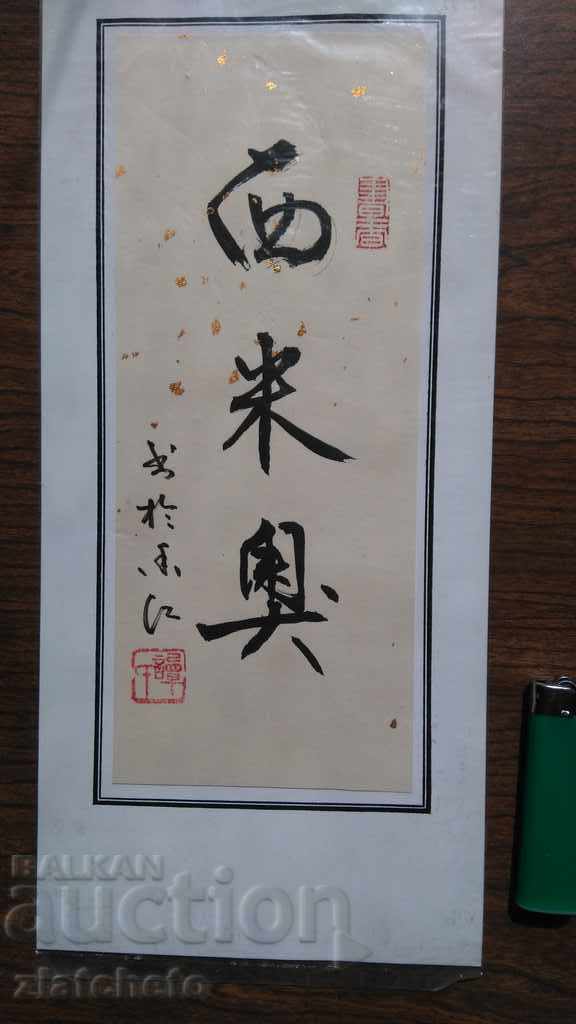 西米奥
书於香江
書香
BALKAN
auction
zlatcheto